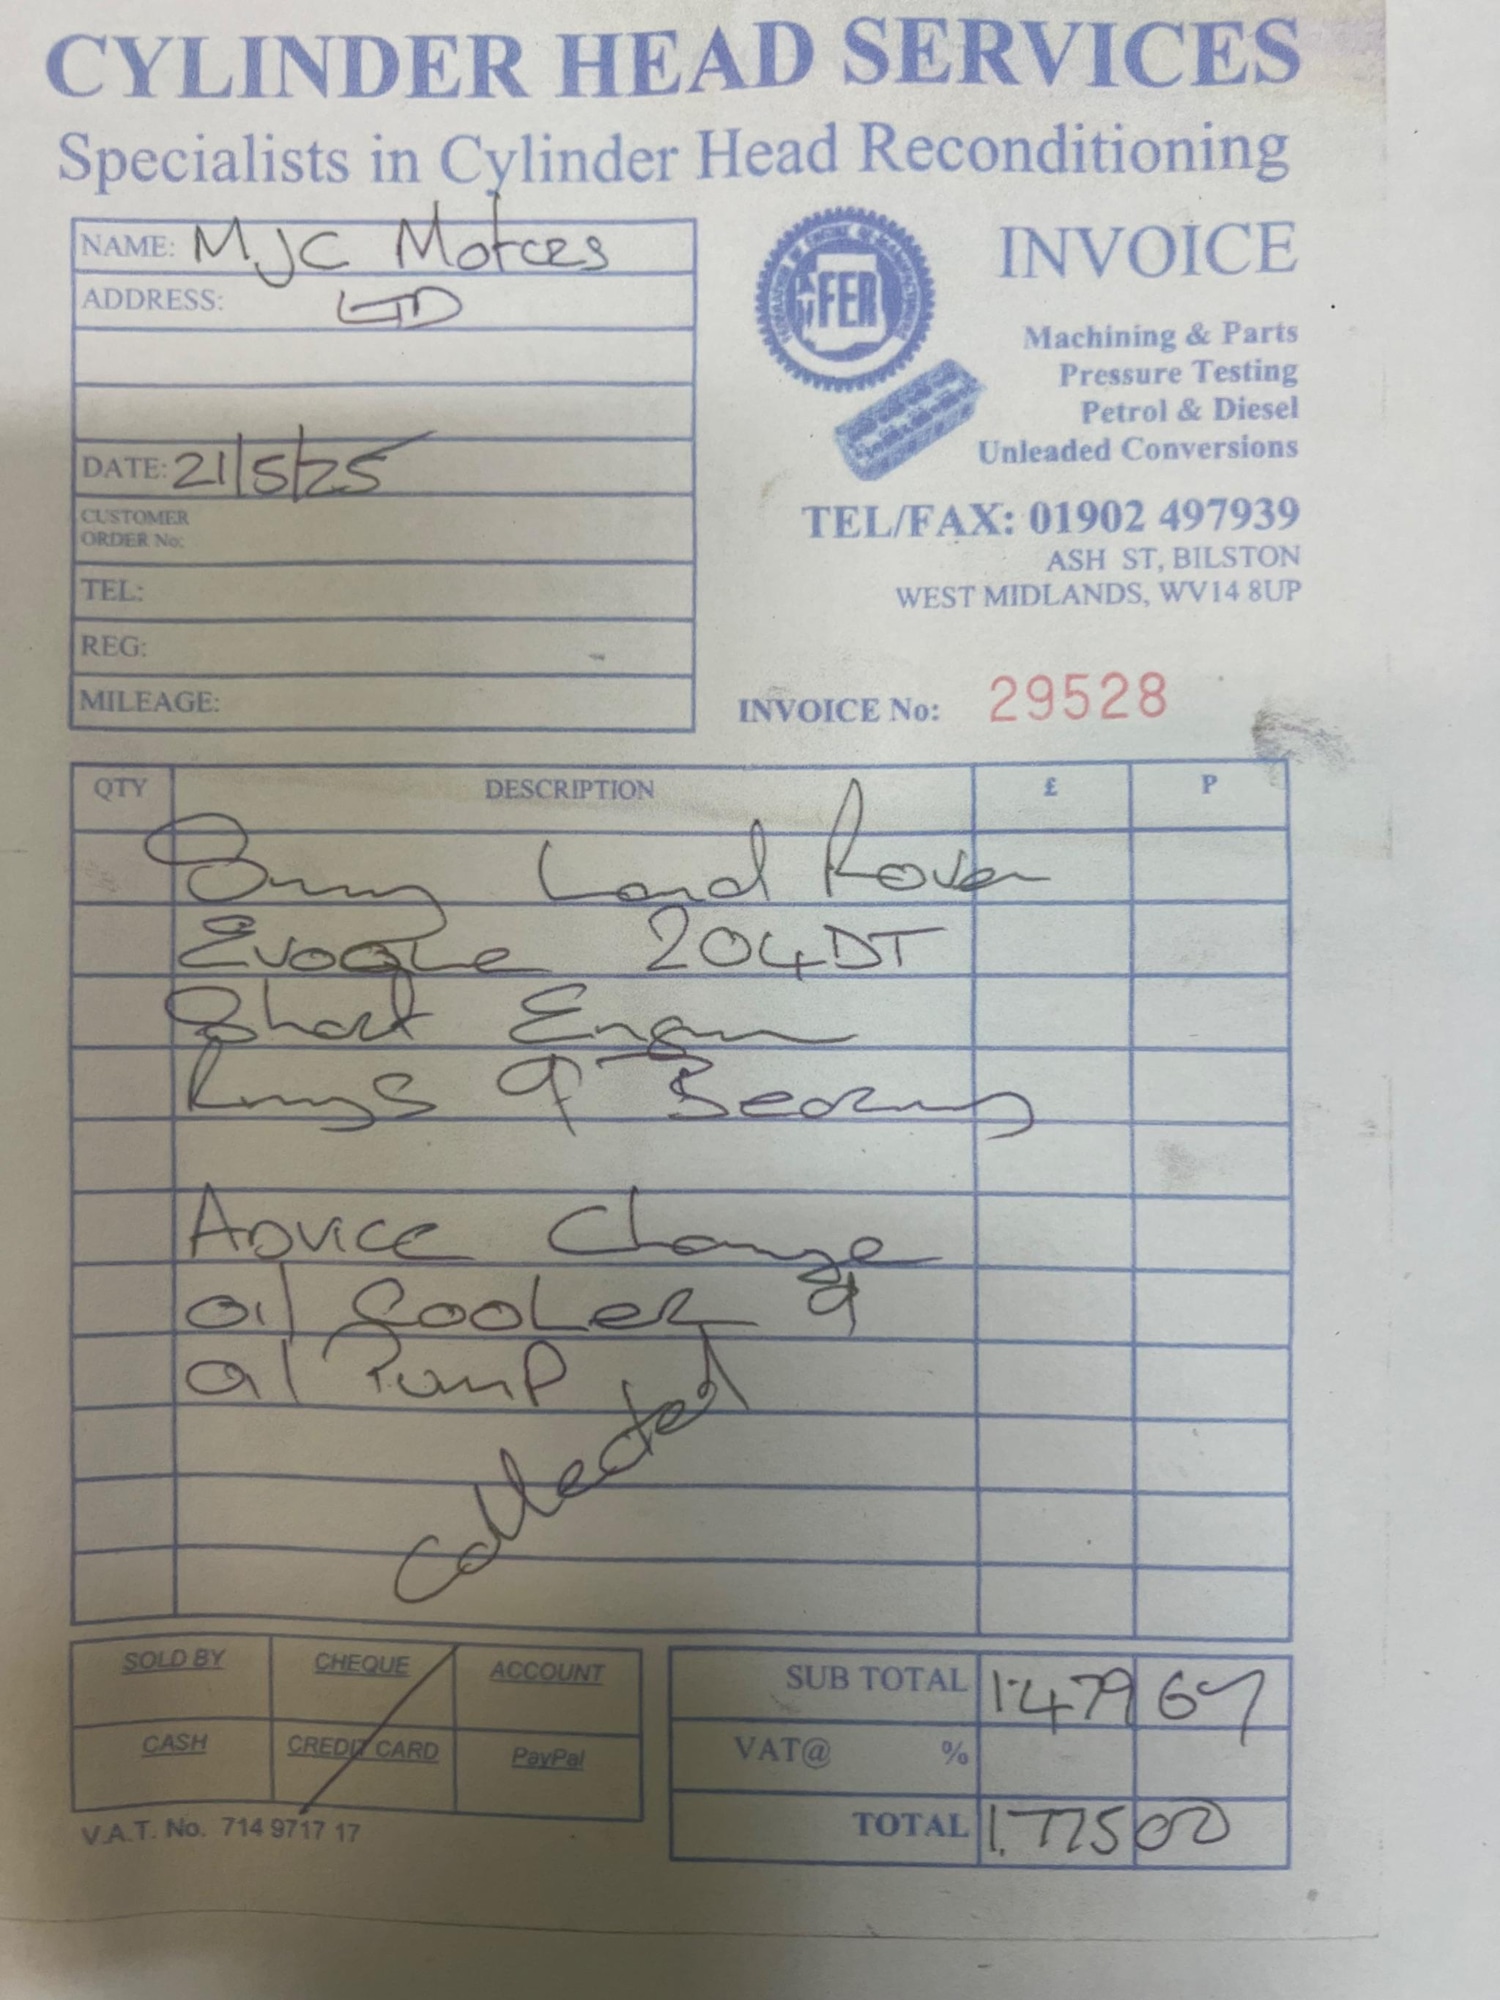 CYLINDER HEAD SERVICES
Specialists in Cylinder Head Reconditioning
NAME: MJC Motors
ADDRESS: LTD
DATE: 21/5/25
CUSTOMER
ORDER No:
TEL:
REG:
MILEAGE:
FER
INVOICE
Machining & Parts
Pressure Testing
Petrol & Diesel
Unleaded Conversions
TEL/FAX: 01902 497939
ASH ST, BILSTON
WEST MIDLANDS, WV14 8UP
INVOICE No: 29528
QTY DESCRIPTION £ P
Land Rover
Evoque 204DT
Short Engine
Rings & Bearings
Advice Change
oil Cooler &
oil Pump
Collected
SOLD BY CHEQUE ACCOUNT
CASH CREDIT CARD PayPal
V.A.T. No. 714 9717 17
SUB TOTAL 1479 67
VAT@ %
TOTAL 1,775 00